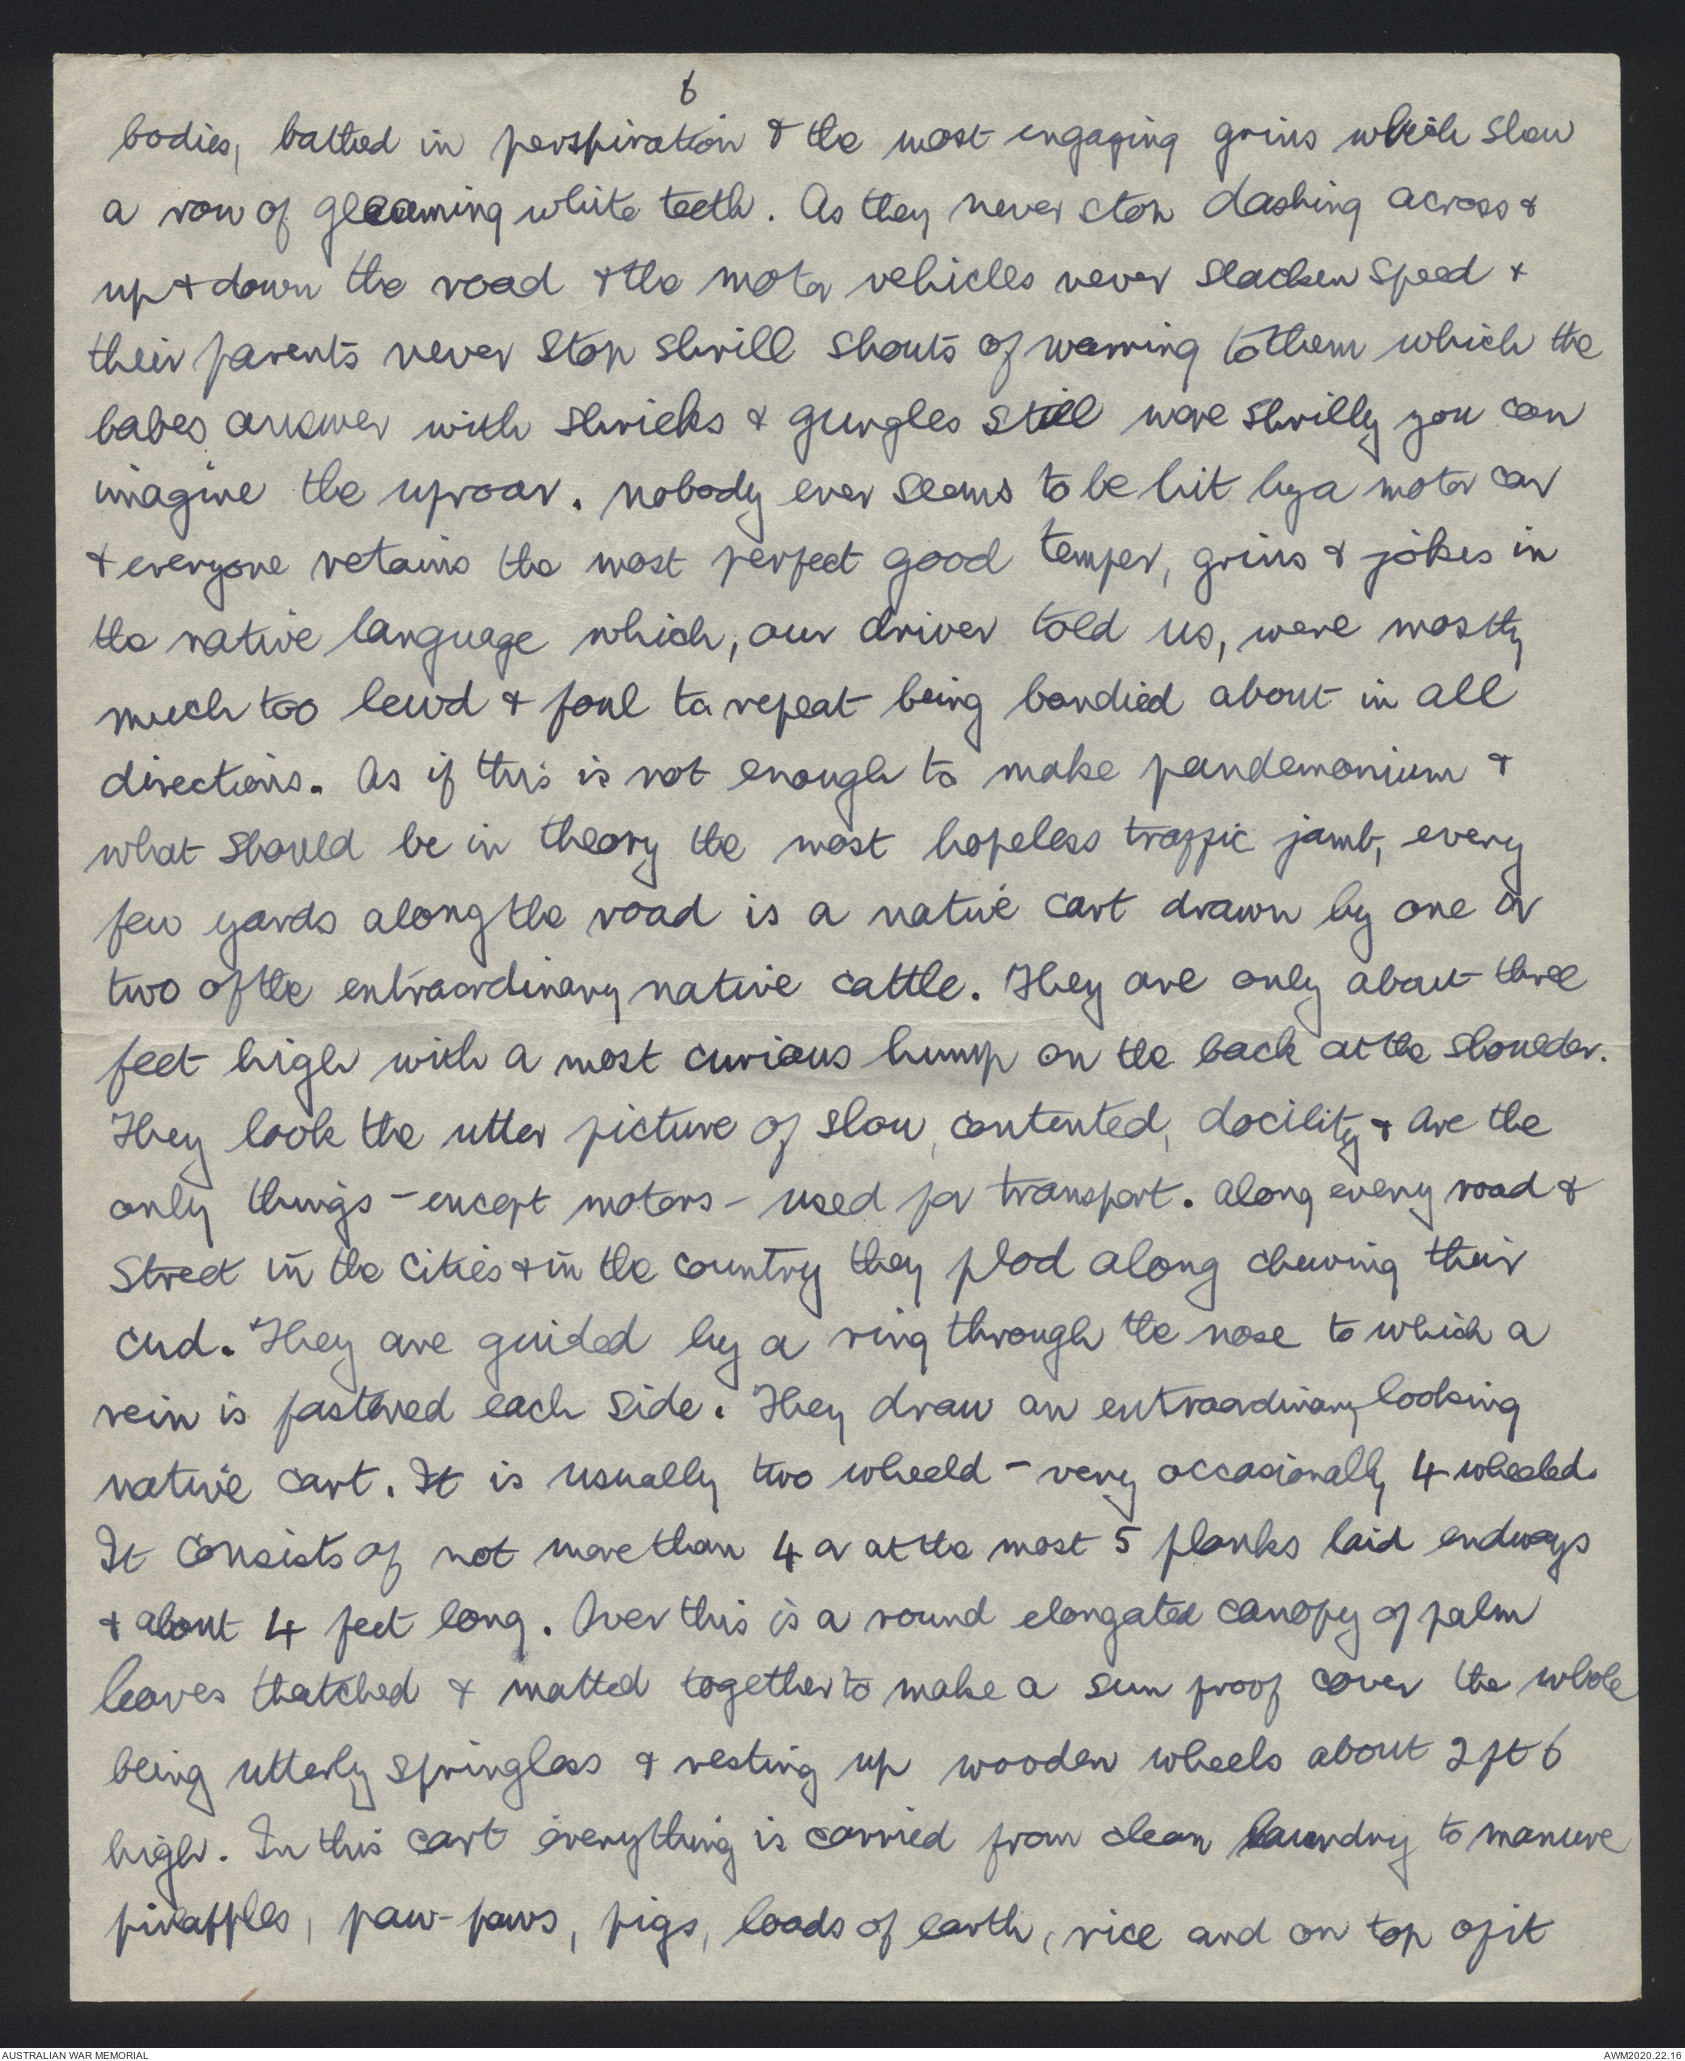 6
bodies, bathed in perspiration & the most engaging grins which show
a row of gleaming white teeth. As they never stop dashing across &
up & down the road & the motor vehicles never slacken speed &
their parents never stop shrill shouts of warning to them which the
babes answer with shrieks & gurgles still more shrilly you can
imagine the uproar. Nobody ever seems to be hit by a motor car
& everyone retains the most perfect good temper, grins & jokes in
the native language which, our driver told us, were mostly
much too lewd & foul to repeat being bandied about in all
directions. As if this is not enough to make pandemonium &
what should be in theory the most hopeless traffic jamb, every
few yards along the road is a native cart drawn by one or
two of the extraordinary native cattle. They are only about three
feet high with a most curious hump on the back at the shoulder.
They look the utter picture of slow, contented, docility & are the
only things - except motors - used for transport. Along every road &
street in the cities & in the country they plod along chewing their
cud. They are guided by a ring through the nose to which a
rein is fastened each side. They draw an extraordinary looking
native cart. It is usually two wheeld - very occasionally 4 wheeled.
It consists of not more than 4 or at the most 5 planks laid endways
& about 4 feet long. Over this is a round elongated canopy of palm
leaves thatched & matted together to make a sun proof cover the whole
being utterly springless & resting up wooden wheels about 2 ft 6
high. In this cart everything is carried from clean laundry to manure
pineapples, paw-paws, pigs, loads of earth, rice and on top of it
AUSTRALIAN WAR MEMORIAL
AWM2020.22.16